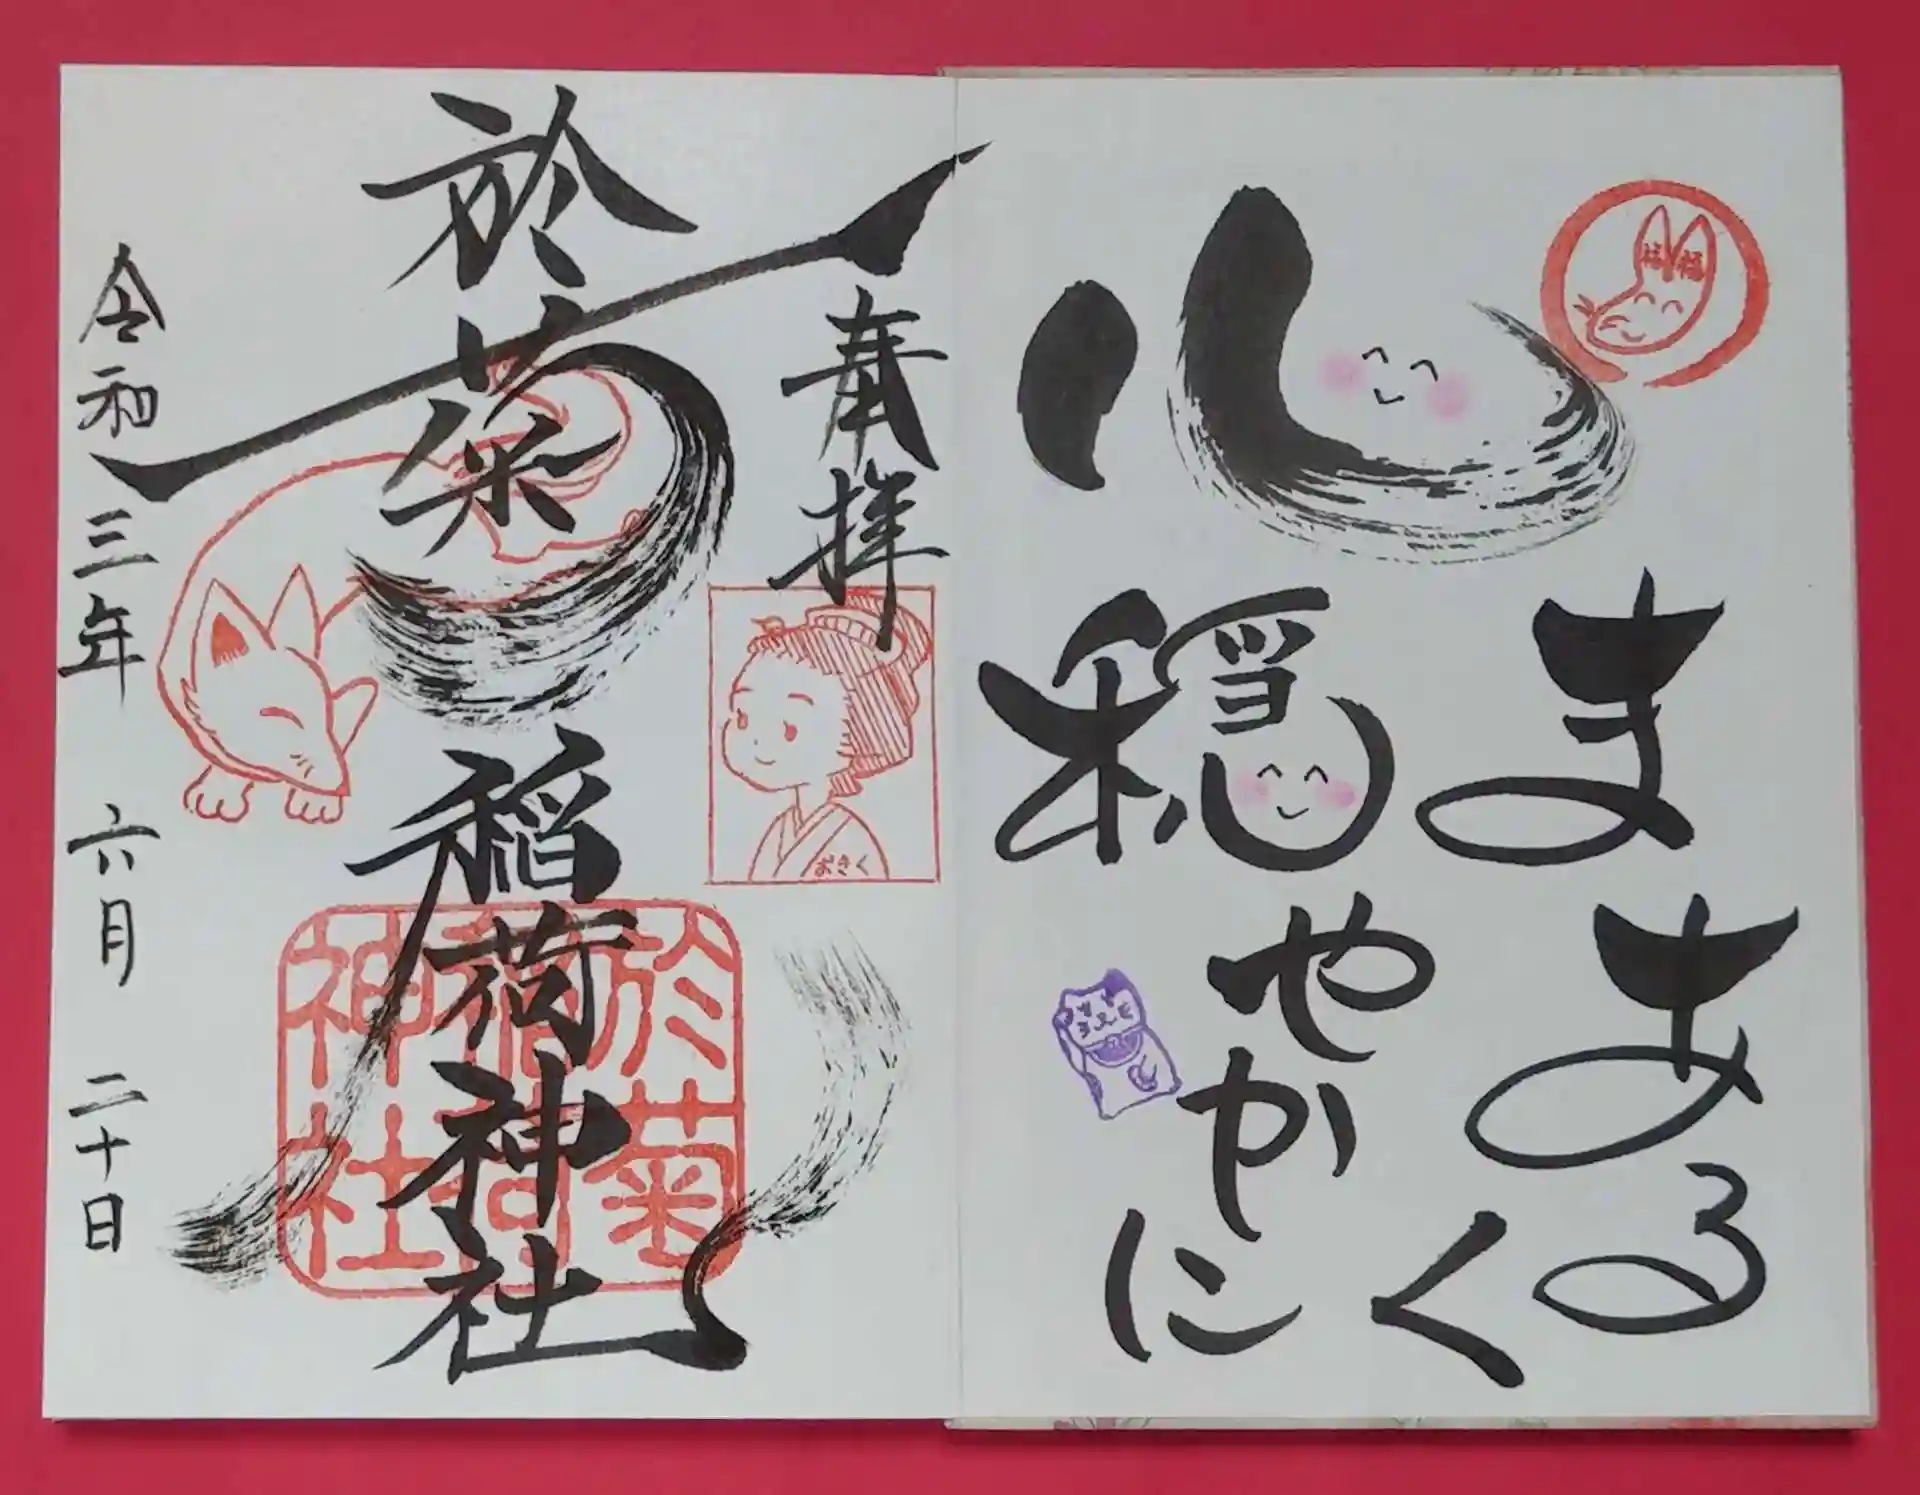 福福
心
まあるく
穏やかに
奉拝
於菊稲荷神社
令和三年 六月 二十日
おきく
於菊
稲荷
神社